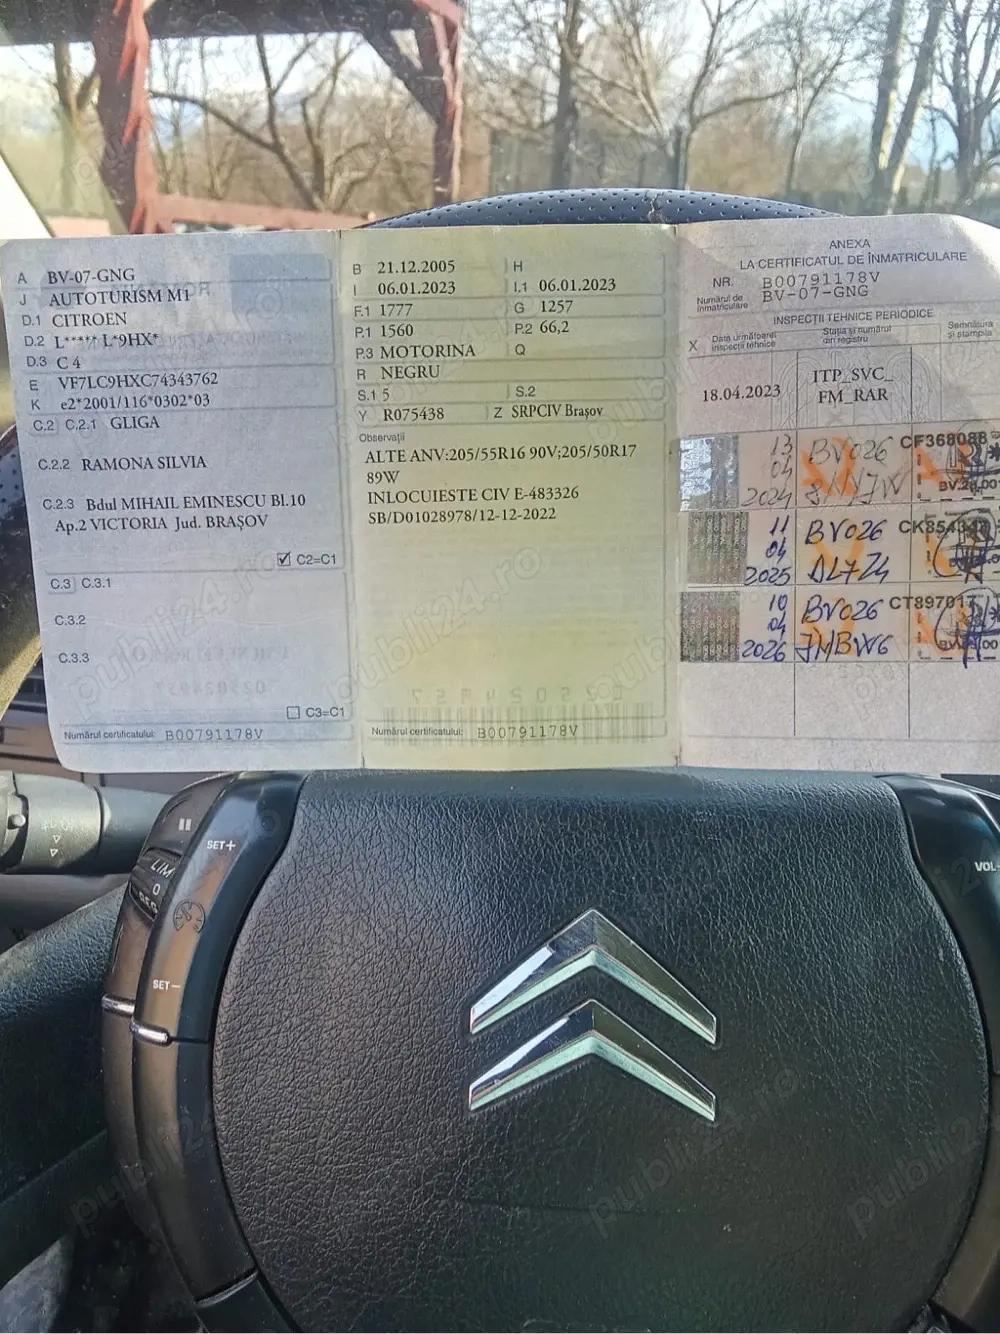 A BV-07-GNG
J AUTOTURISM M1
D.1 CITROEN
D.2 L***** L*9HX*
D.3 C 4
E VF7LC9HXC74343762
K e2*2001/116*0302*03
C.2 C.2.1 GLIGA
C.2.2 RAMONA SILVIA
C.2.3 Bdul MIHAIL EMINESCU Bl.10
Ap.2 VICTORIA Jud. BRAŞOV
C2=C1
C.3 C.3.1
C.3.2
C.3.3
C3=C1
Numărul certificatului: B00791178V
B 21.12.2005 H
I 06.01.2023 I.1 06.01.2023
F.1 1777 G 1257
P.1 1560 P.2 66,2
P.3 MOTORINA Q
R NEGRU
S.1 5 S.2
Y R075438 Z SRPCIV Braşov
Observaţii
ALTE ANV:205/55R16 90V;205/50R17
89W
INLOCUIESTE CIV E-483326
SB/D01028978/12-12-2022
Numărul certificatului: B00791178V
ANEXA
LA CERTIFICATUL DE ÎNMATRICULARE
NR. B00791178V
Numărul de înmatriculare BV-07-GNG
INSPECŢII TEHNICE PERIODICE
X Data următoarei inspecţii tehnice Staţia şi numărul din registru Semnătura şi ştampila
18.04.2023 ITP_SVC_
FM_RAR
13 04 2024 BV026 CF368088
11 04 2025 BV026
10 04 2026 BV026 CT897017
SET+
LIM
0
SET-
VOL-
publi24.ro